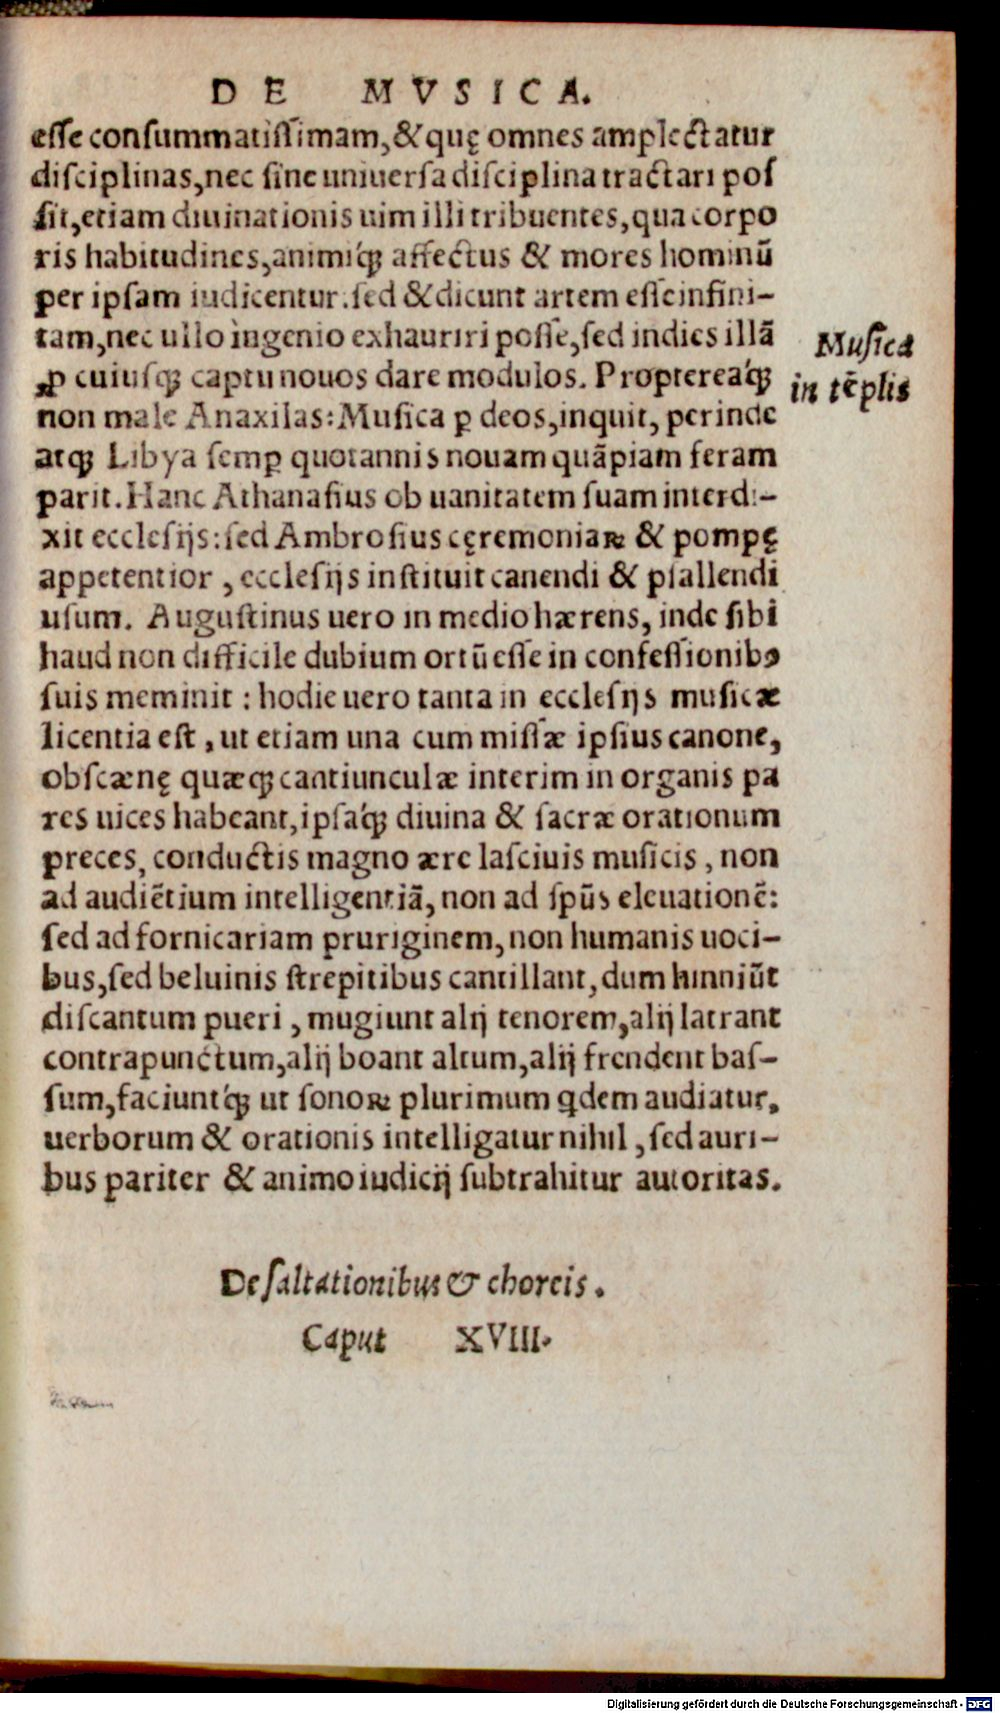 DE MVSICA.
esse consummatissimam,&quę omnes amplectatur
disciplinas,nec sine uniuersa disciplina tractari pos
sit,etiam diuinationis uim illi tribuentes,qua corpo
ris habitudines,animiq́ꝫ affectus & mores hominū
per ipsam iudicentur.sed &dicunt artem esse infini-
tam,nec ullo ingenio exhauriri posse,sed indies illā
ꝓ cuiusqꝫ captu nouos dare modulos. Proptereaq́ꝫ
Musica
in tēplis
non male Anaxilas:Musica ꝑ deos,inquit, perinde
atqꝫ Libya semꝑ quotannis nouam quāpiam feram
parit.Hanc Athanasius ob uanitatem suam interdi-
xit ecclesijs:sed Ambrosius cęremoniaꝝ & pompę
appetentior , ecclesijs instituit canendi & psallendi
usum. Augustinus uero in medio hærens, inde sibi
haud non difficile dubium ortū esse in confessionibꝰ
suis meminit : hodie uero tanta in ecclesijs musicæ
licentia est , ut etiam una cum missæ ipsius canone,
obscænę quæqꝫ cantiunculæ interim in organis pa
res uices habeant,ipsaq́ꝫ diuina & sacræ orationum
preces, conductis magno ære lasciuis musicis , non
ad audiētium intelligentiā, non ad spūs eleuationē:
sed ad fornicariam pruriginem,non humanis uoci-
bus,sed beluinis strepitibus cantillant,dum hinniūt
discantum pueri , mugiunt alij tenorem,alij latrant
contrapunctum,alij boant altum,alij frendent bas-
sum,faciuntq́ꝫ ut sonoꝝ plurimum qdem audiatur,
uerborum & orationis intelligatur nihil , sed auri-
bus pariter & animo iudicij subtrahitur autoritas.
De saltationibus & choreis.
Caput XVIII.
Digitalisierung gefördert durch die Deutsche Forschungsgemeinschaft - DFG